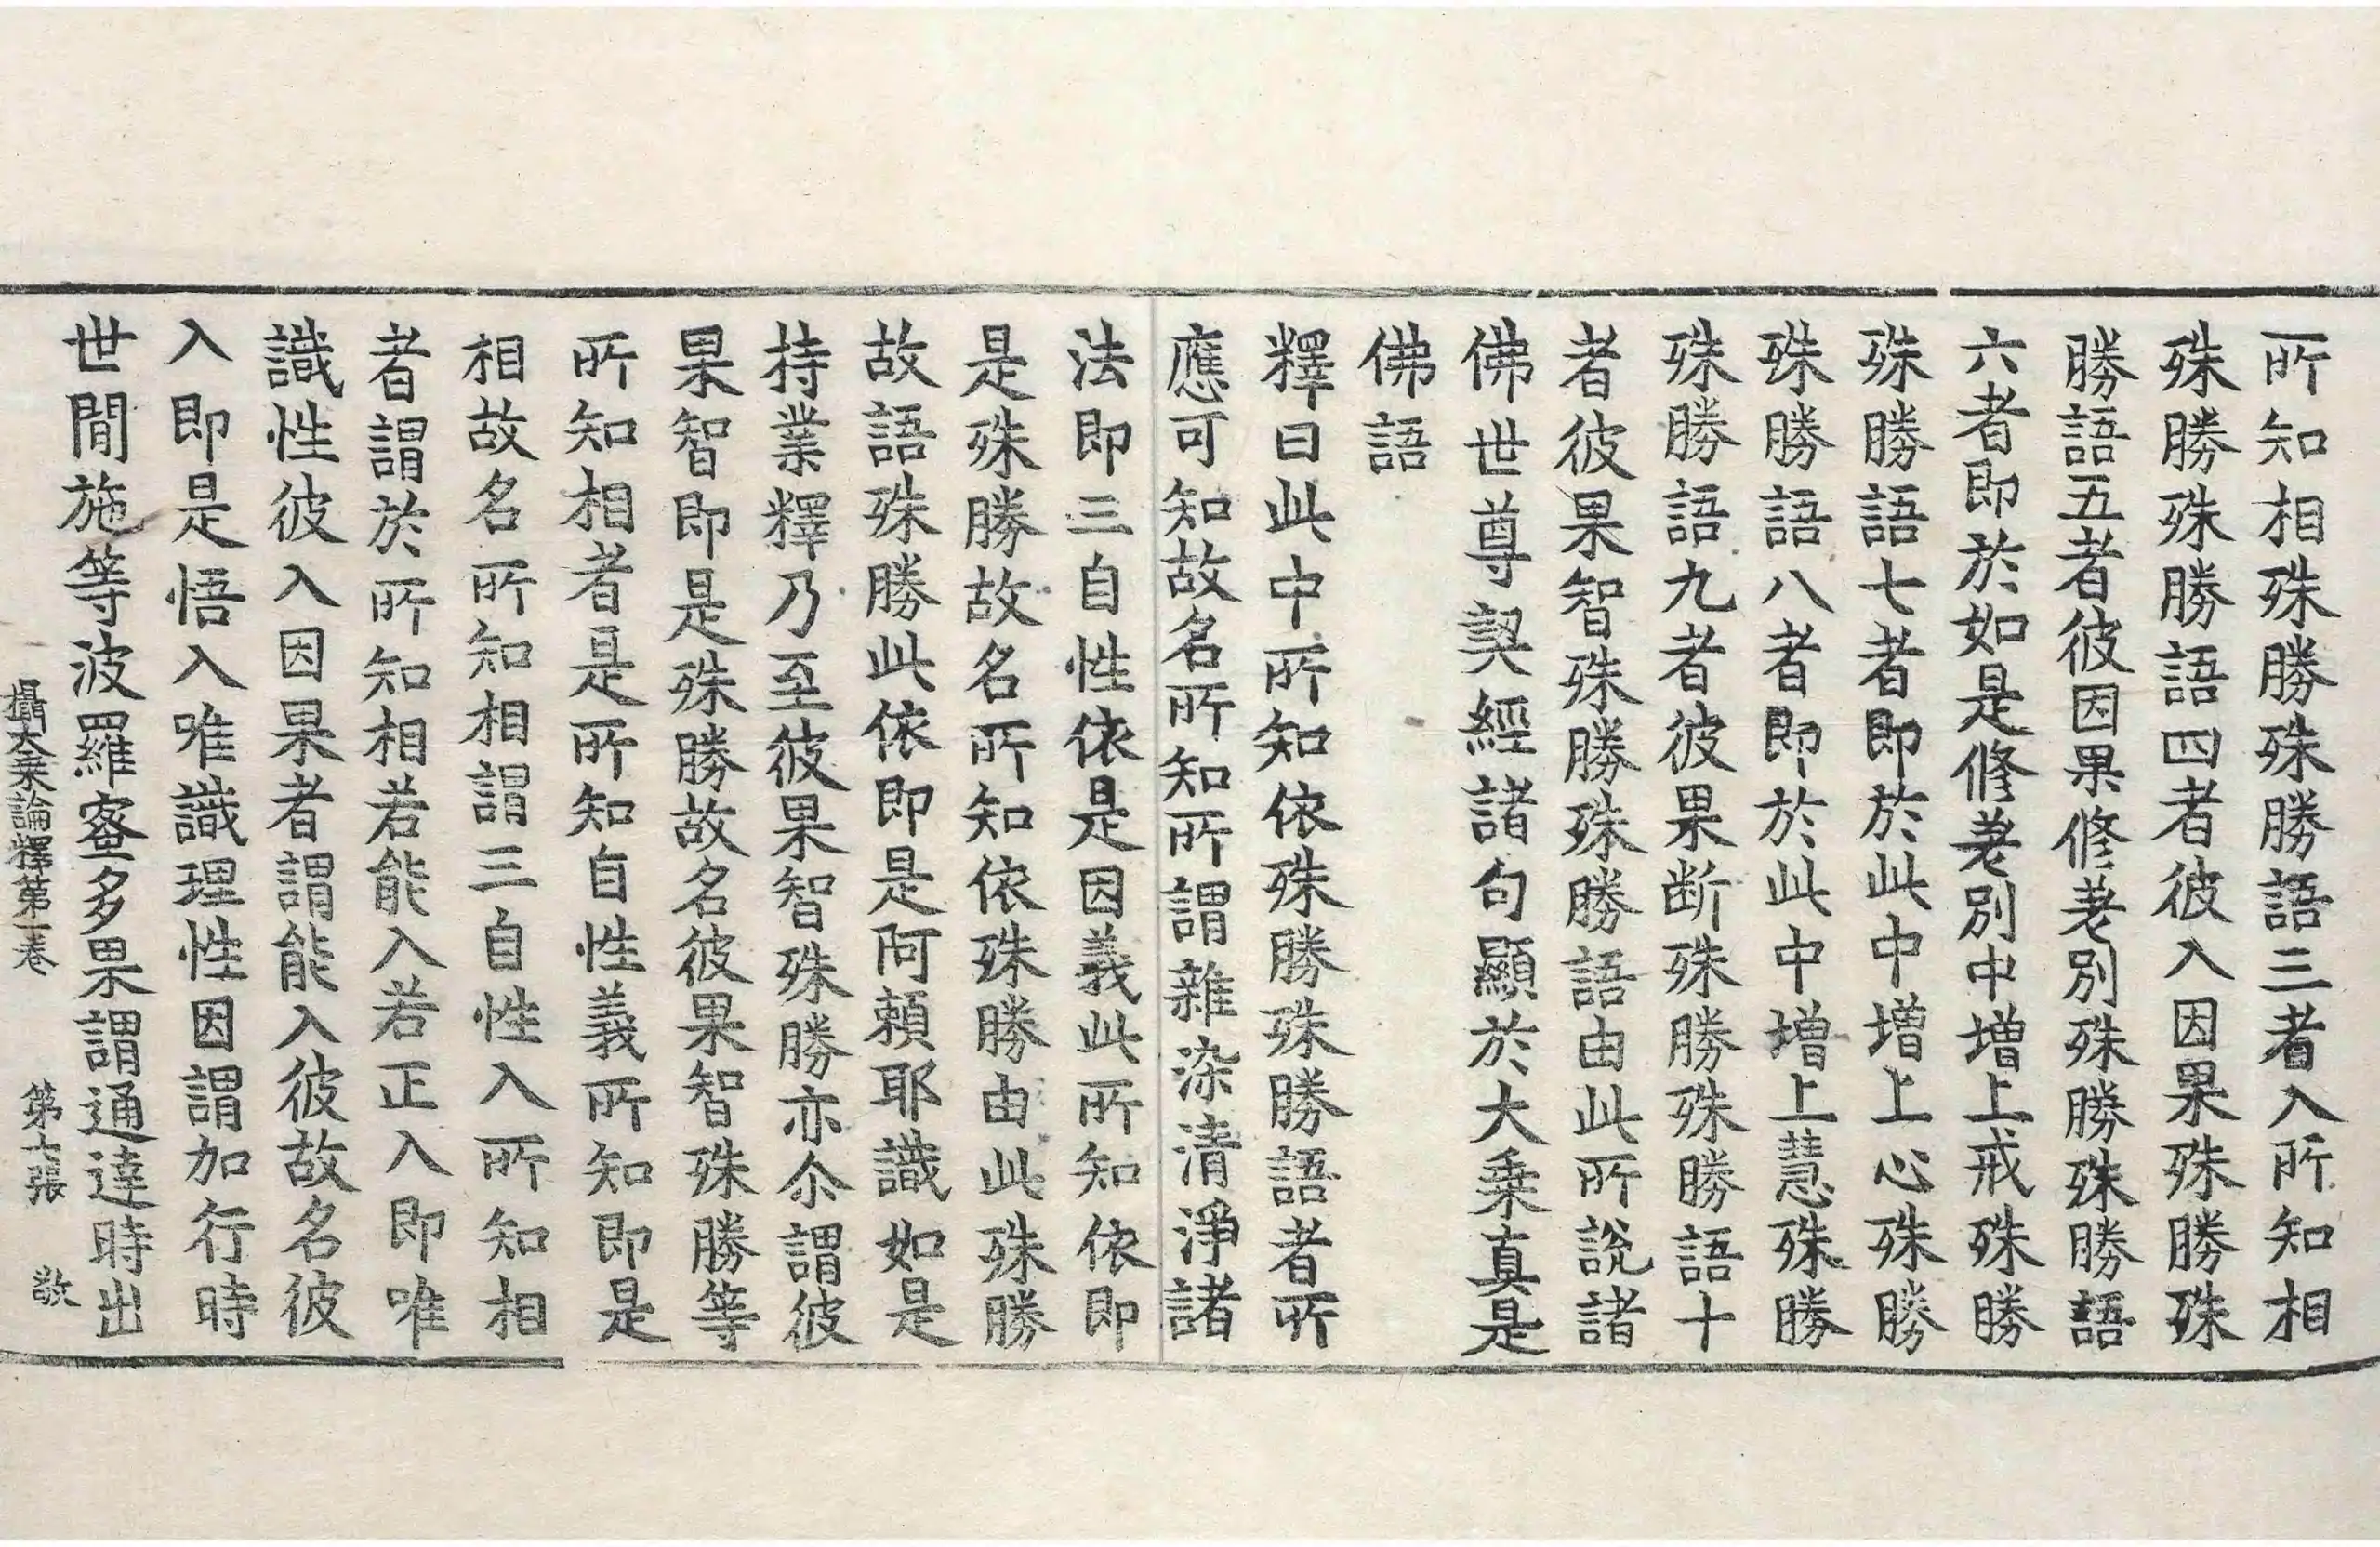 所知相殊勝殊勝語三者入所知相
殊勝殊勝語四者彼入因果殊勝殊
勝語五者彼因果修差別殊勝殊勝語
六者即於如是修差別中增上戒殊勝
殊勝語七者即於此中增上心殊勝
殊勝語八者即於此中增上慧殊勝
殊勝語九者彼果断殊勝殊勝語十
者彼果智殊勝殊勝語由此所說諸
佛世尊契經諸句顯於大乗真是
佛語
釋曰此中所知依殊勝殊勝語者所
應可知故名所知所謂雜染清淨諸
法即三自性依是因義此所知依即
是殊勝故名所知依殊勝由此殊勝
故語殊勝此依即是阿頼耶識如是
持業釋乃至彼果智殊勝亦尒謂彼
果智即是殊勝故名彼果智殊勝等
所知相者是所知自性義所知即是
相故名所知相謂三自性入所知相
者謂於所知相若能入若正入即唯
識性彼入因果者謂能入彼故名彼
入即是悟入唯識理性因謂加行時
世間施等波羅蜜多果謂通達時出
攝大乗論釋第一卷 第七張 敬